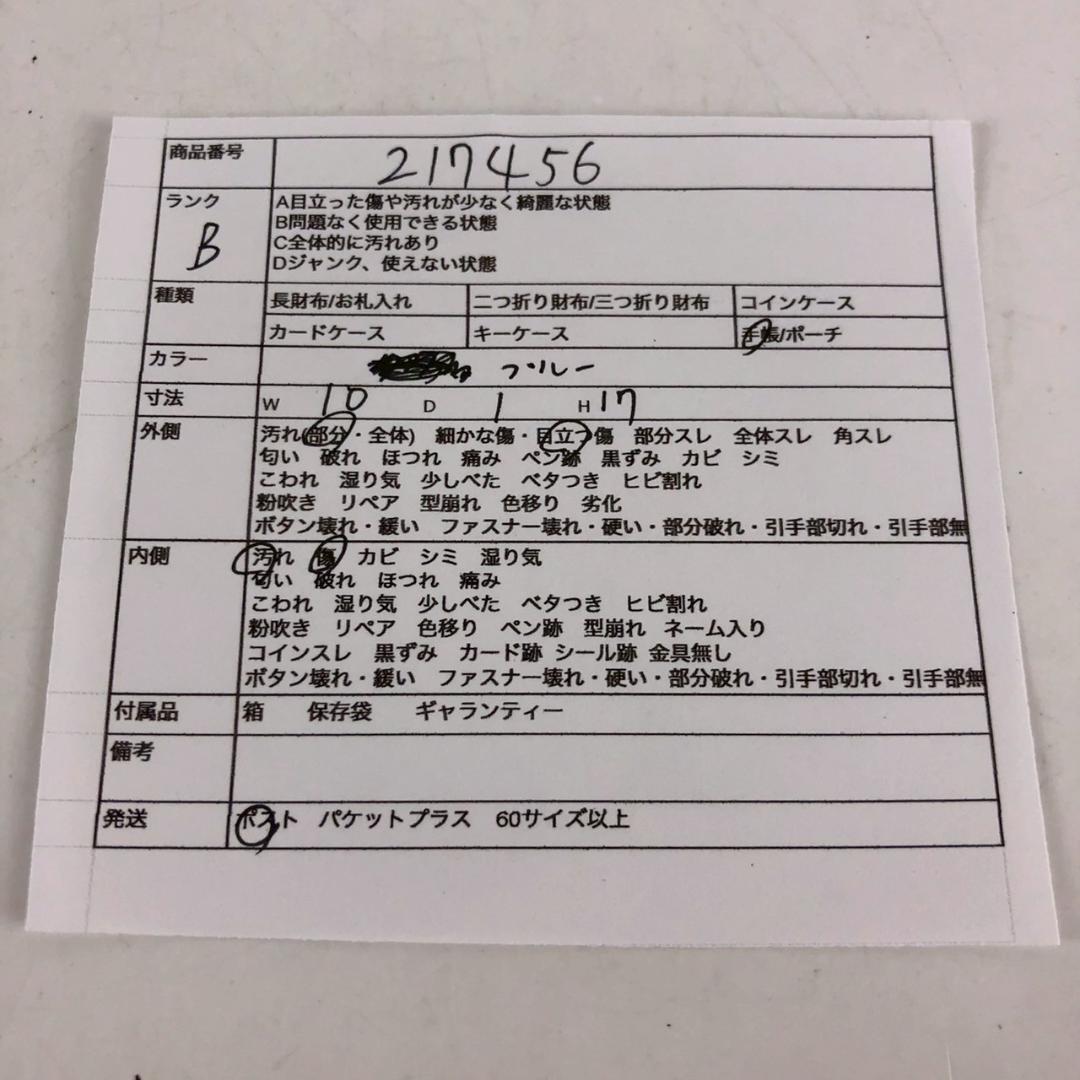 商品番号 217456
ランク B
A目立った傷や汚れが少なく綺麗な状態
B問題なく使用できる状態
C全体的に汚れあり
Dジャンク、使えない状態
種類 長財布/お札入れ 二つ折り財布/三つ折り財布 コインケース
カードケース キーケース 手帳/ポーチ
カラー ブルー
寸法 W 10 D 1 H 17
外側 汚れ(部分・全体) 細かな傷・目立つ傷 部分スレ 全体スレ 角スレ
匂い 破れ ほつれ 痛み ペン跡 黒ずみ カビ シミ
こわれ 湿り気 少しべた ベタつき ヒビ割れ
粉吹き リペア 型崩れ 色移り 劣化
ボタン壊れ・緩い ファスナー壊れ・硬い・部分破れ・引手部切れ・引手部無
内側 汚れ 傷 カビ シミ 湿り気
匂い 破れ ほつれ 痛み
こわれ 湿り気 少しべた ベタつき ヒビ割れ
粉吹き リペア 色移り ペン跡 型崩れ ネーム入り
コインスレ 黒ずみ カード跡 シール跡 金具無し
ボタン壊れ・緩い ファスナー壊れ・硬い・部分破れ・引手部切れ・引手部無
付属品 箱 保存袋 ギャランティー
備考
発送 ポスト パケットプラス 60サイズ以上